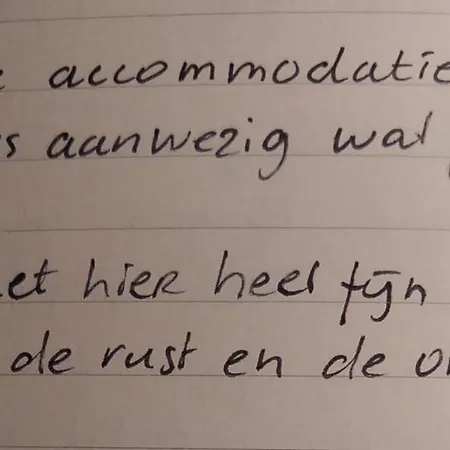 accommodatie
aanwezig wat
et hier heel fijn
de rust en de